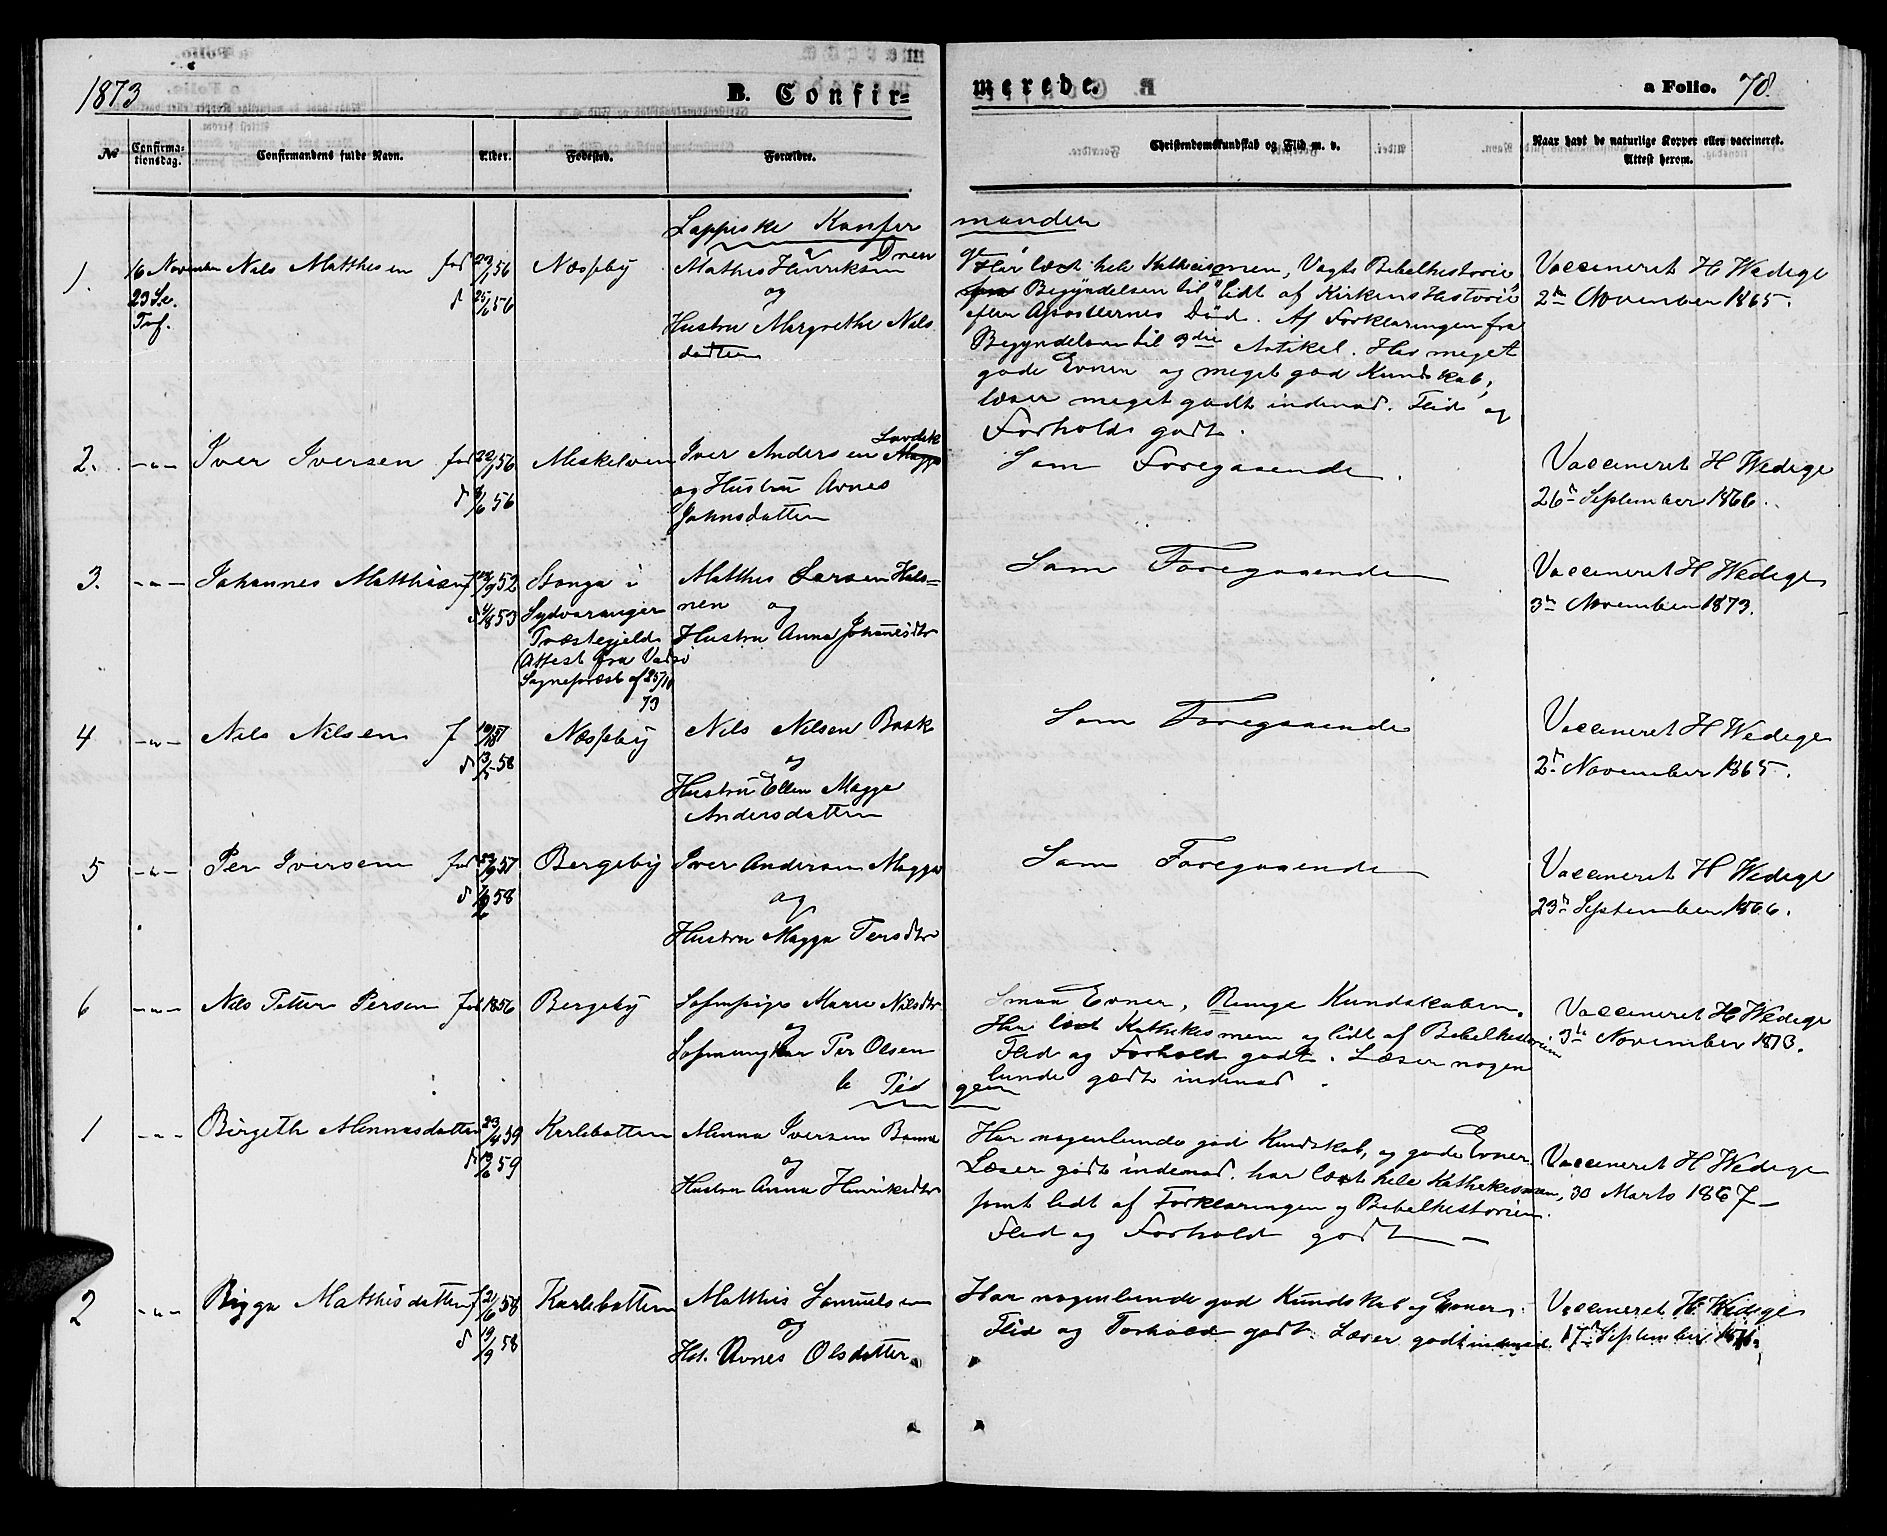 1873
B. Confir-
merede.
a Folio. 78.
No
Confirma-
tionsdag.
Confirmandens fulde Navn.
Alder.
Fødested.
Forældre.
Christendomskundskab og Flid m. v.
Naar havt de naturlige Kopper eller vaccineret.
Attest herom.
Lappiske Konfir
manden
1.
16 November
23 S. e.
Tref.
Nils Mathisen
fød 23/1 56
d 25/6 56
Næsseby
Mathis Henriksen
og
Hustru Margrethe Nils
datter
Har læst hele Kathecismen, Vogts Bibelhistorie
Begyndelsen til "lidt af Kirkens Historie"
efter Apostlernes Død. Af Forklaringen fra
Begyndelsen til 3die Artikel. Har meget
gode Evner og meget god Kundskab,
læser meget godt indenad. Flid og
Forholds godt.
Vaccineret H Wedege
2n November 1865.
2.
-"-
Iver Iversen
fød 22/1 56
d 8/6 56
Meskelven
Iver Andersen
og Hustru Avnes
Johnsdatter
Som Foregaaende.
Vaccineret H Wedege
26n September 1866.
3.
-"-
Johannes Matthisen
52
d 4/8 53
Stonga i
Sydvaranger
Præstegjeld
(Attest fra Vadsø
Sognepræst af 25/10
73
Matthis Larsen Hals=
nen og
Hustru Anna Johanesdtr
Som Foregaaende
Vaccineret H Wedege
3n November 1873.
4
-"-
Nils Nilsen
f
57
d 13/5 58
Næsseby
Nils Nilsen Bask
og
Hustru Ellen Magga
Andersdatter
Som Foregaaende
Vaccineret H Wedege
2n November 1865.
5
-"-
Per Iversen
fød 57
d 58
Bergeby
Iver Andersen Magga
og
Hustru Magga Persdtr
Som Foregaaende
Vaccineret H Wedege
23n September 1866.
6
-"-
Nils Petter Persen
fød 1856
Bergeby
Løsmpige Marie Nilsdtr
og
Løsmungkar Per Olsen
Smaa Evner, Ringe Kundskaber.
Har læst Kathekismen og lidt af Bibelhistorien
Flid og Forhold godt. Læser nogen
lunde godt indenad.
Vaccineret H Wedege
3n November 1873.
b Pi
gen
1
-"-
Birgeth Minnasdatter
23/4 59
d 13/6 59
Karlebotten
Minna Iversen Banna
og
Hustru Anna Henriksdtr
Har nogenlunde god Kundskab, og gode Evner.
Læser godt indenad. har læst hele Kathekismen,
samt lidt af Forklaringen og Bibelhistorien.
Flid og Forhold godt
Vaccineret H Wedege
30 Marts 1867
2
-"-
Bigga Matthisdatter
f 21/6 58
d 19/9 58
Karlebotten
Matthis Samuelsen
og
Hst. Avnes Olsdatter
Har nogenlunde god Kundskab og Evner.
Flid og Forhold godt. Læser godt indenad.
Vaccineret H. Wedege
17n September